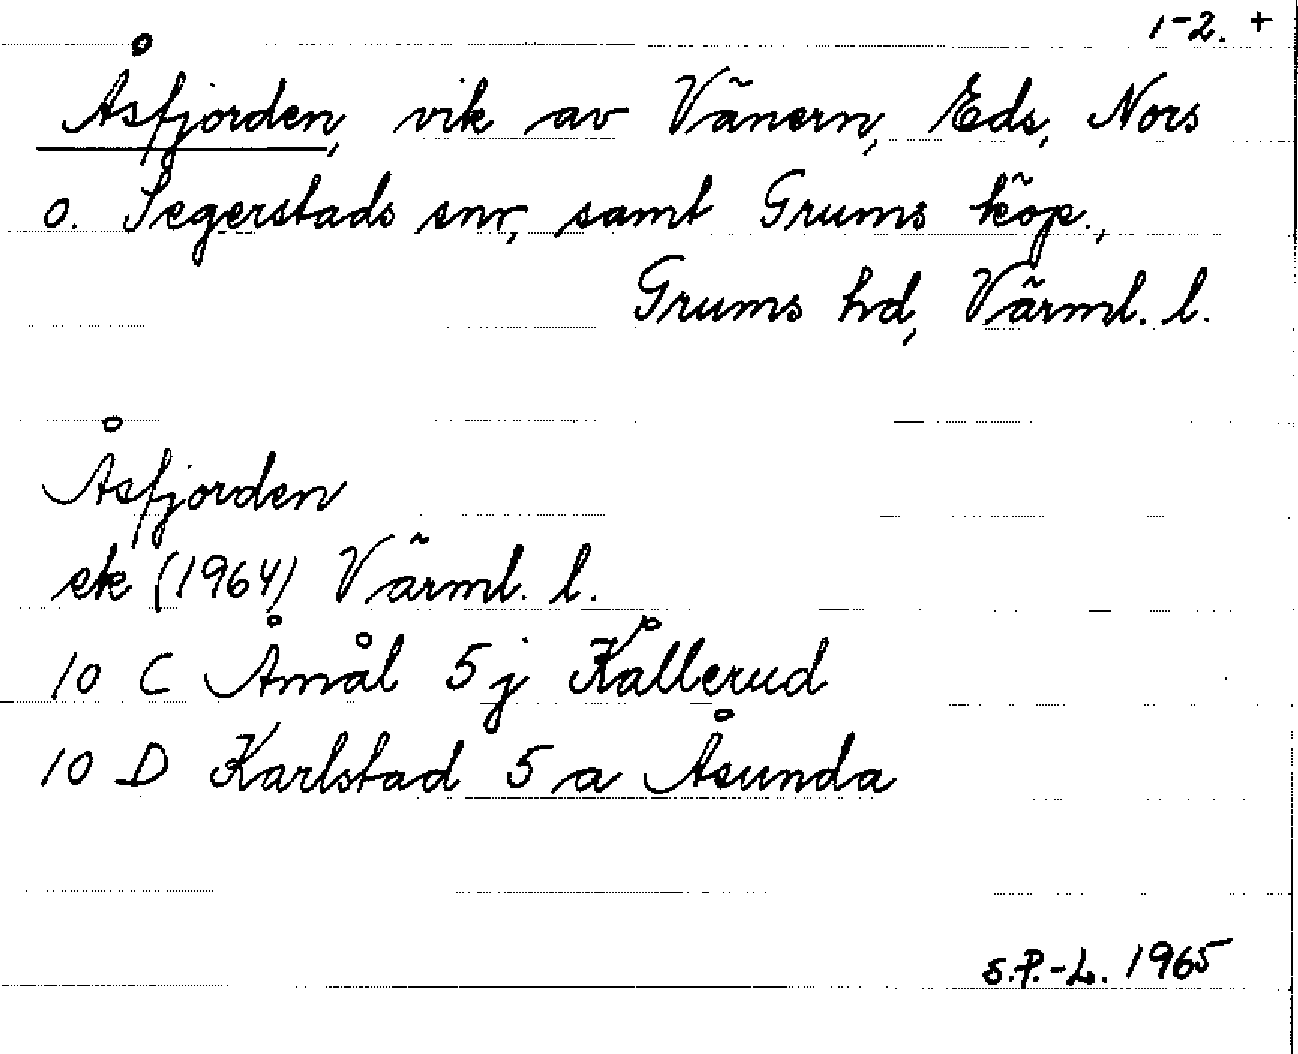 1-2. +
Åsfjorden, vik av Vänern, Eds, Nors
o. Segerstads snr, samt Grums köp.,
Grums hd, Värml. l.
Åsfjorden
ek (1964) Värml. l.
10 C Åmål 5 j Kållerud
10 D Karlstad 5 a Åsunda
S.P.-L. 1965